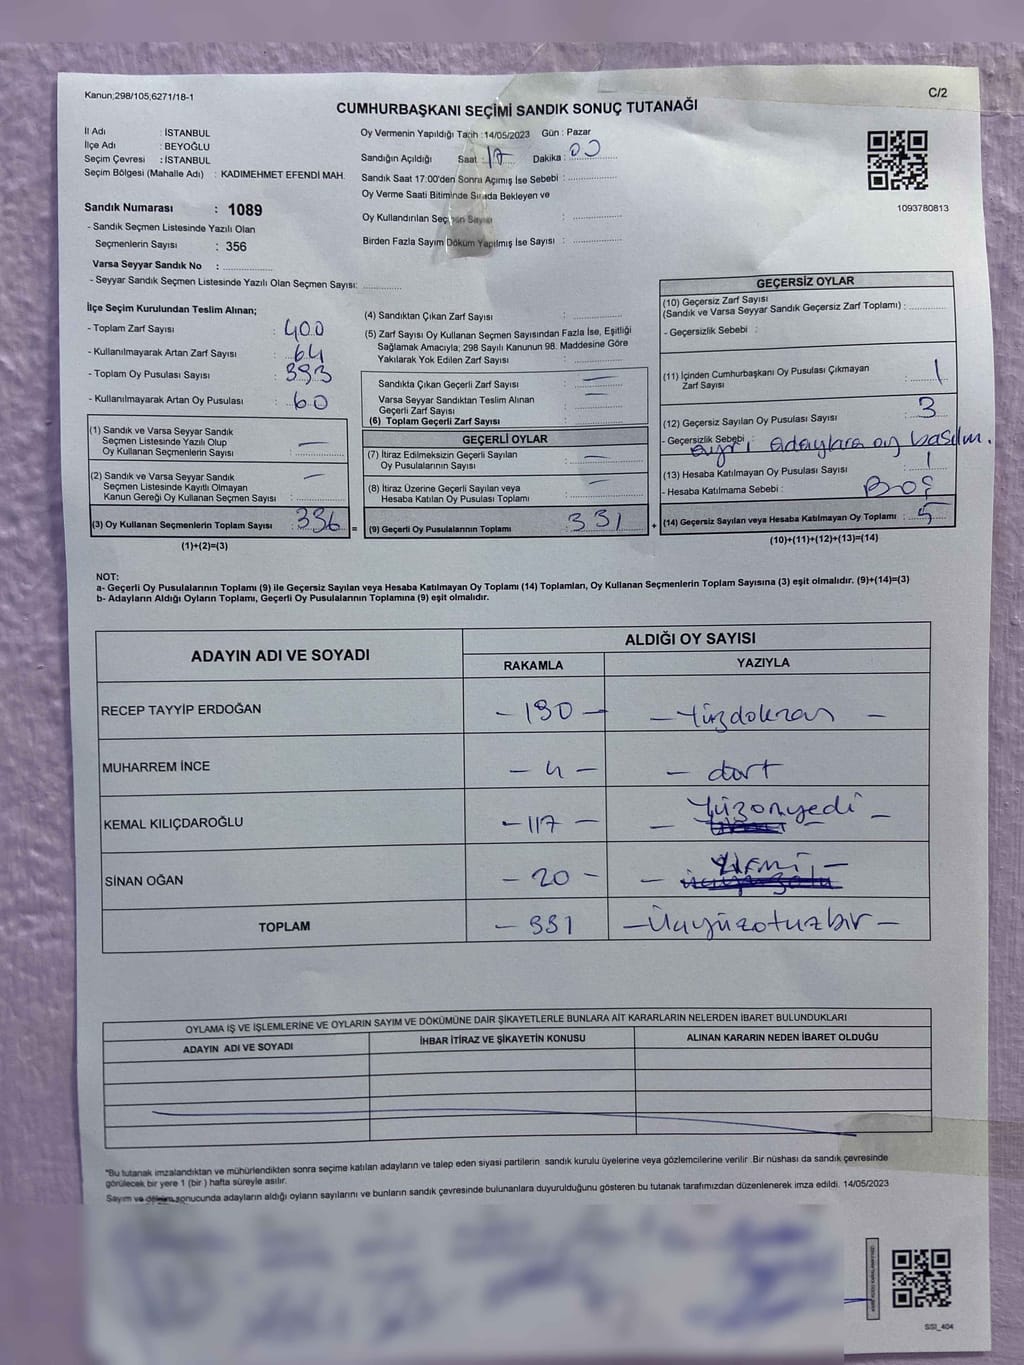 Kanun;298/105,6271/18-1
C/2
CUMHURBAŞKANI SEÇİMİ SANDIK SONUÇ TUTANAĞI
İl Adı : İSTANBUL
İlçe Adı : BEYOĞLU
Seçim Çevresi : İSTANBUL
Seçim Bölgesi (Mahalle Adı) : KADIMEHMET EFENDİ MAH.
Oy Vermenin Yapıldığı Tarih :14/05/2023 Gün : Pazar
Sandığın Açıldığı Saat : 17 Dakika : 00
Sandık Saat 17:00'den Sonra Açımış İse Sebebi :
Oy Verme Saati Bitiminde Sırada Bekleyen ve
Oy Kullandırılan Seçmen Sayısı :
Birden Fazla Sayım Döküm Yapılmış İse Sayısı :
1093780813
Sandık Numarası : 1089
- Sandık Seçmen Listesinde Yazılı Olan
Seçmenlerin Sayısı : 356
Varsa Seyyar Sandık No :
- Seyyar Sandık Seçmen Listesinde Yazılı Olan Seçmen Sayısı:
İlçe Seçim Kurulundan Teslim Alınan;
- Toplam Zarf Sayısı : 400
- Kullanılmayarak Artan Zarf Sayısı : 64
- Toplam Oy Pusulası Sayısı : 393
- Kullanılmayarak Artan Oy Pusulası : 60
(1) Sandık ve Varsa Seyyar Sandık
Seçmen Listesinde Yazılı Olup
Oy Kullanan Seçmenlerin Sayısı : —
(2) Sandık ve Varsa Seyyar Sandık
Seçmen Listesinde Kayıtlı Olmayan
Kanun Gereği Oy Kullanan Seçmen Sayısı : —
(3) Oy Kullanan Seçmenlerin Toplam Sayısı : 336 =
(1)+(2)=(3)
(4) Sandıktan Çıkan Zarf Sayısı :
(5) Zarf Sayısı Oy Kullanan Seçmen Sayısından Fazla İse, Eşitliği
Sağlamak Amacıyla; 298 Sayılı Kanunun 98. Maddesine Göre
Yakılarak Yok Edilen Zarf Sayısı :
Sandıkta Çıkan Geçerli Zarf Sayısı : —
Varsa Seyyar Sandıktan Teslim Alınan
Geçerli Zarf Sayısı : —
(6) Toplam Geçerli Zarf Sayısı :
GEÇERLİ OYLAR
(7) İtiraz Edilmeksizin Geçerli Sayılan
Oy Pusulalarının Sayısı : —
(8) İtiraz Üzerine Geçerli Sayılan veya
Hesaba Katılan Oy Pusulası Toplamı : —
(9) Geçerli Oy Pusulalarının Toplamı : 331 +
GEÇERSİZ OYLAR
(10) Geçersiz Zarf Sayısı
(Sandık ve Varsa Seyyar Sandık Geçersiz Zarf Toplamı) :
- Geçersizlik Sebebi :
(11) İçinden Cumhurbaşkanı Oy Pusulası Çıkmayan
Zarf Sayısı : 1
(12) Geçersiz Sayılan Oy Pusulası Sayısı : 3
- Geçersizlik Sebebi : ayrı adaylara oy basılm.
(13) Hesaba Katılmayan Oy Pusulası Sayısı : 1
- Hesaba Katılmama Sebebi : Boş
(14) Geçersiz Sayılan veya Hesaba Katılmayan Oy Toplamı : 5
(10)+(11)+(12)+(13)=(14)
NOT:
a- Geçerli Oy Pusulalarının Toplamı (9) ile Geçersiz Sayılan veya Hesaba Katılmayan Oy Toplamı (14) Toplamları, Oy Kullanan Seçmenlerin Toplam Sayısına (3) eşit olmalıdır. (9)+(14)=(3)
b- Adayların Aldığı Oyların Toplamı, Geçerli Oy Pusulalarının Toplamına (9) eşit olmalıdır.
ADAYIN ADI VE SOYADI
ALDIĞI OY SAYISI
RAKAMLA YAZIYLA
RECEP TAYYİP ERDOĞAN – 190 – – Yüzdoksan –
MUHARREM İNCE – 4 – – dört
KEMAL KILIÇDAROĞLU – 117 – – Yüzonyedi –
SİNAN OĞAN – 20 – – Yirmi –
TOPLAM – 331 – Üçyüzotuzbir –
OYLAMA İŞ VE İŞLEMLERİNE VE OYLARIN SAYIM VE DÖKÜMÜNE DAİR ŞİKAYETLERLE BUNLARA AİT KARARLARIN NELERDEN İBARET BULUNDUKLARI
ADAYIN ADI VE SOYADI İHBAR İTİRAZ VE ŞİKAYETİN KONUSU ALINAN KARARIN NEDEN İBARET OLDUĞU
*Bu tutanak imzalandıktan ve mühürlendikten sonra seçime katılan adayların ve talep eden siyasi partilerin sandık kurulu üyelerine veya gözlemcilerine verilir. Bir nüshası da sandık çevresinde
görülecek bir yere 1 (bir ) hafta süreyle asılır.
Sayım ve döküm sonucunda adayların aldığı oyların sayılarını ve bunların sandık çevresinde bulunanlara duyurulduğunu gösteren bu tutanak tarafımızdan düzenlenerek imza edildi. 14/05/2023
SSI_404